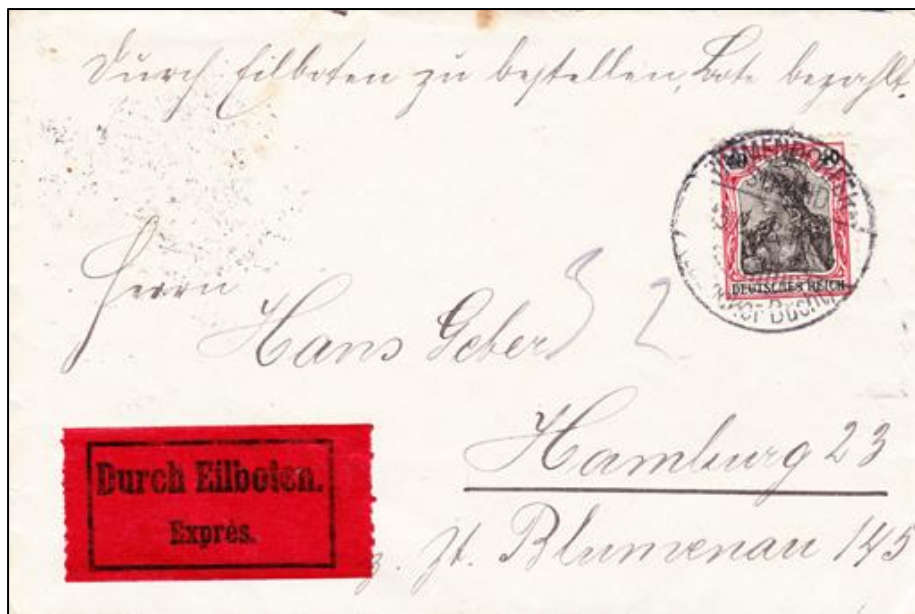 Durch Eilboten zu bestellen, Bote bezahlt.
40 40
DEUTSCHES REICH
Herrn
Hans Geber
3 2
Hamburg 23
z. Zt. Blumenau 145
Durch Eilboten.
Exprès.